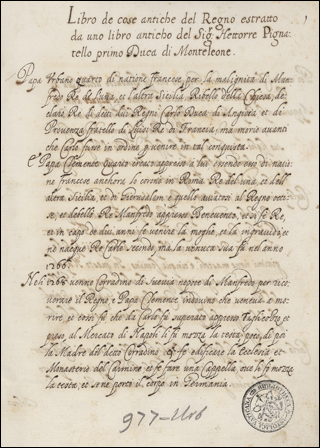 Libro de cose antiche del Regno estratto
da uno libro anticho del Sig. Hettorre Pigna
tello primo Duca di Monteleone.
Papa Urbano quarto di natione francese, per la malignità di Man
fredo Re di l'una, et l'altra Sicilia Ribelle della Chiesa, de
clarò Re di detti dui Regni Carlo Duca di Angioia et di
Provenza fratello di Luise Re di Francia, ma morio avanti
che Carlo fusse in ordine p venire in tal conquista.
E Papa Clemente Quarto successo appresso a lui essendo ancor di natio
ne francese anchora lo coronò in Roma Re dell'una et dell'
altra Sicilia, et di Gierusalem e quello intrato al Regno
et debellò Re Manfredo appresso Benevento, et si fè Re,
et in capo de dui anni fè venire la moglie, et la ingravidò, et
ne nacque Re Carlo secondo, ma la venuta sua fù nel anno
1266.
Nel 1268 venne Corradino di Suevia nepote di Manfredo per ri
cuperare il Regno e Papa Clemente che veneva a mo
rire, et così fù che da Carlo fù superato appresso Tagliacozzo et
preso, al Mercato di Napoli li fù mozza la testa, poi
la Madre del detto Corradino fè edificare la Ecclesia et
Monasterio del Carmino, et fè fare una Cappella, ove li fù mozza
la testa, et se ne portò il corpo in Germania.
977-Urb